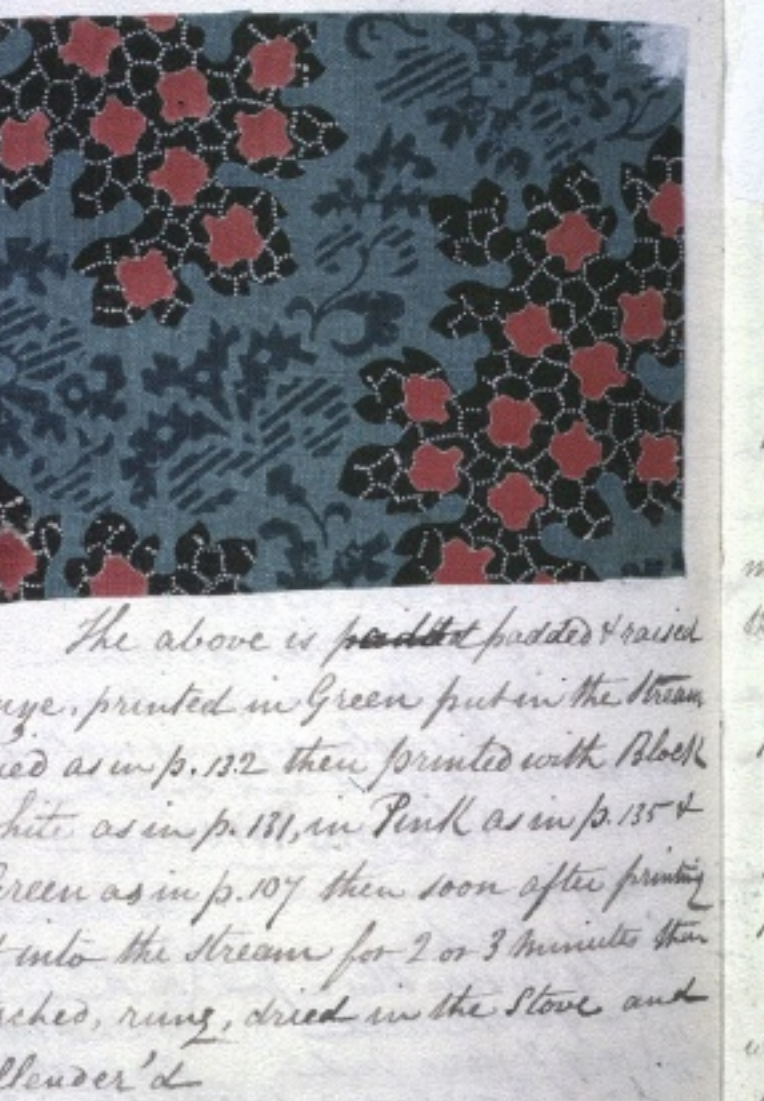 The above is padded & raised
printed in Green put in the Stream
as in p. 132 then printed with Block
as in p. 131, in Pink as in p. 135 &
Green as in p. 107 then soon after printing
into the stream for 2 or 3 minutes then
rung, dried in the Stove and
llender'd